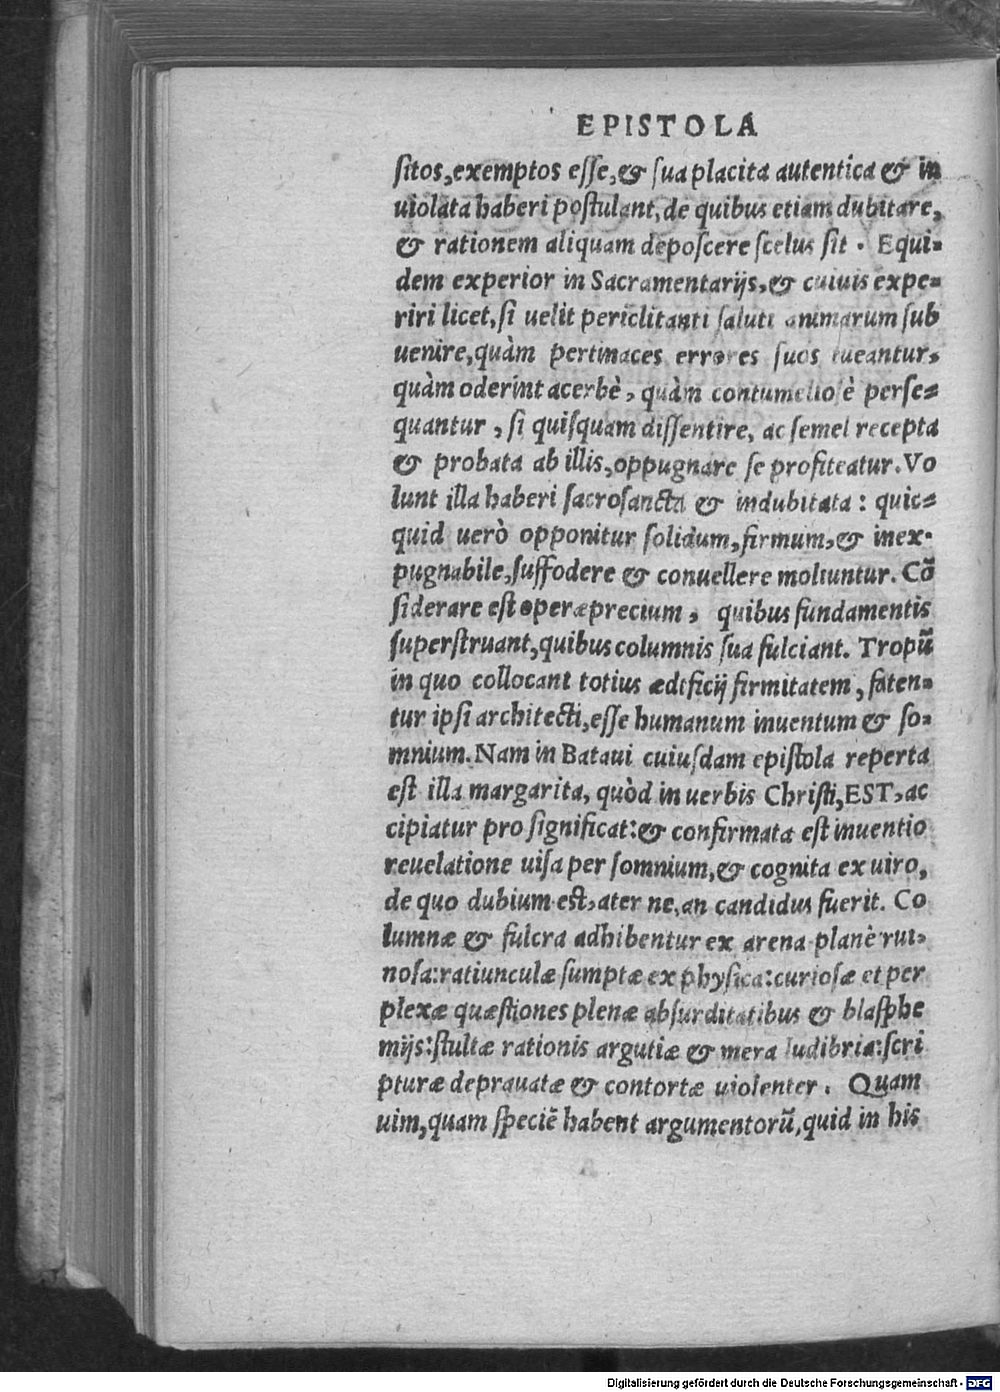 EPISTOLA
ſitos,exemptos eſſe,& ſua placita autentica & in
uiolata haberi poſtulant, de quibus etiam dubitare,
& rationem aliquam depoſcere ſcelus ſit. Equi-
dem experior in Sacramentarijs,& cuiuis expe-
riri licet,ſi uelit periclitanti ſaluti animarum ſub
uenire,quàm pertinaces errores ſuos tueantur,
quàm oderint acerbè, quàm contumelioſè perſe-
quantur, ſi quiſquam diſſentire, ac ſemel recepta
& probata ab illis,oppugnare ſe profiteatur.Vo
lunt illa haberi ſacroſancta & indubitata: quic-
quid uerò opponitur ſolidum,firmum,& inex-
pugnabile,ſuffodere & conuellere moliuntur. Cõ
ſiderare eſt operæprecium, quibus fundamentis
ſuperſtruant,quibus columnis ſua fulciant. Tropũ
in quo collocant totius ædificij firmitatem, faten-
tur ipſi architecti,eſſe humanum inuentum & ſo-
mnium.Nam in Bataui cuiuſdam epiſtola reperta
eſt illa margarita, quòd in uerbis Chriſti,EST,ac
cipiatur pro ſignificat:& confirmata eſt inuentio
reuelatione uiſa per ſomnium,& cognita ex uiro,
de quo dubium eſt,ater ne,an candidus fuerit. Co
lumnæ & fulcra adhibentur ex arena planè rui-
noſa:ratiunculæ ſumptæ ex phyſica:curioſæ et per
plexæ quæſtiones plenæ abſurditatibus & blaſphe
mijs:ſtultæ rationis argutiæ & mera ludibria:ſcri
pturæ deprauatæ & contortæ uiolenter. Quam
uim,quam ſpeciẽ habent argumentorũ,quid in his
Digitalisierung gefördert durch die Deutsche Forschungsgemeinschaft - DFG